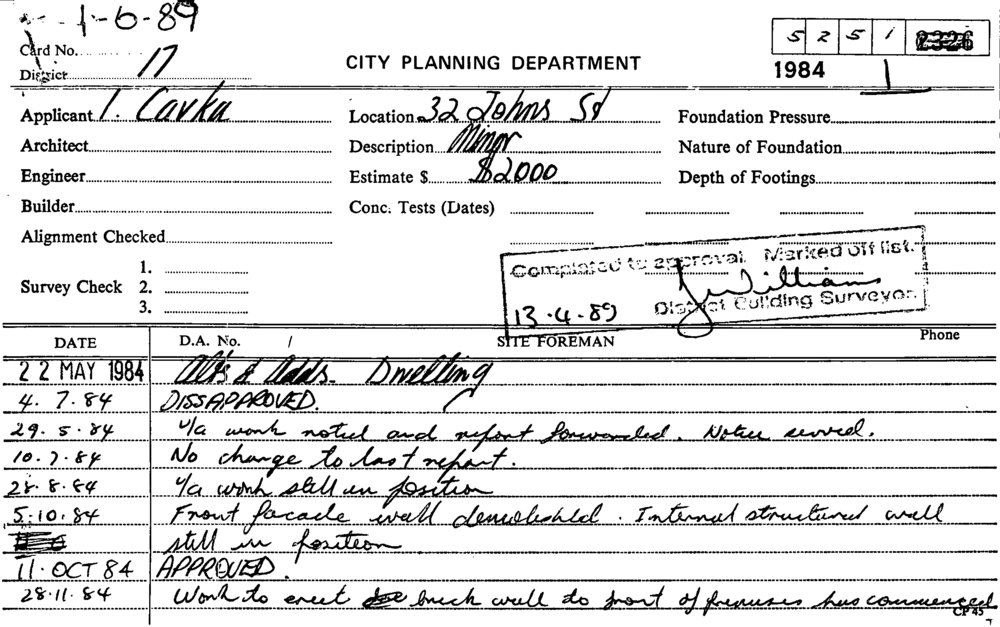 1-6-89
Card No.
District 17
CITY PLANNING DEPARTMENT
5 2 5 1
1984 1
Applicant I. Cavka
Location 32 Johns St
Foundation Pressure
Architect
Description Minor
Nature of Foundation
Engineer
Estimate $ $2000
Depth of Footings
Builder
Conc. Tests (Dates)
Alignment Checked
Survey Check 1. 2. 3.
Completed to approval. Marked off list.
J Williams
13.4.89 District Building Surveyor.
DATE D.A. No. / SITE FOREMAN Phone
22 MAY 1984 Alts & Adds. Dwelling
4. 7. 84 DISSAPPROVED.
29. 5. 84 U/a work noted and report forwarded. Notice served.
10. 7. 84 No change to last report.
28. 8. 84 U/a work still in position
5. 10. 84 Front facade wall demolished. Internal structural wall
still in position
11. OCT 84 APPROVED.
28.11.84 Work to erect brick wall to front of premises has commenced
CP 45